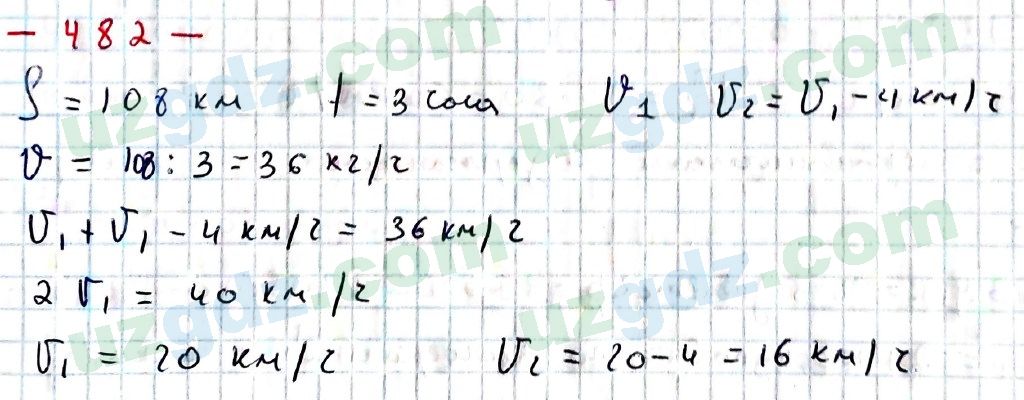 - 482 -
S = 108 км t = 3 соат V1 V2 = V1 - 4 км/ч
V = 108 : 3 = 36 кг/ч
V1 + V1 - 4 км/ч = 36 км/ч
2 V1 = 40 км/ч
V1 = 20 км/ч V2 = 20 - 4 = 16 км/ч
uzgdz.com uzgdz.com
uzgdz.com uzgdz.com